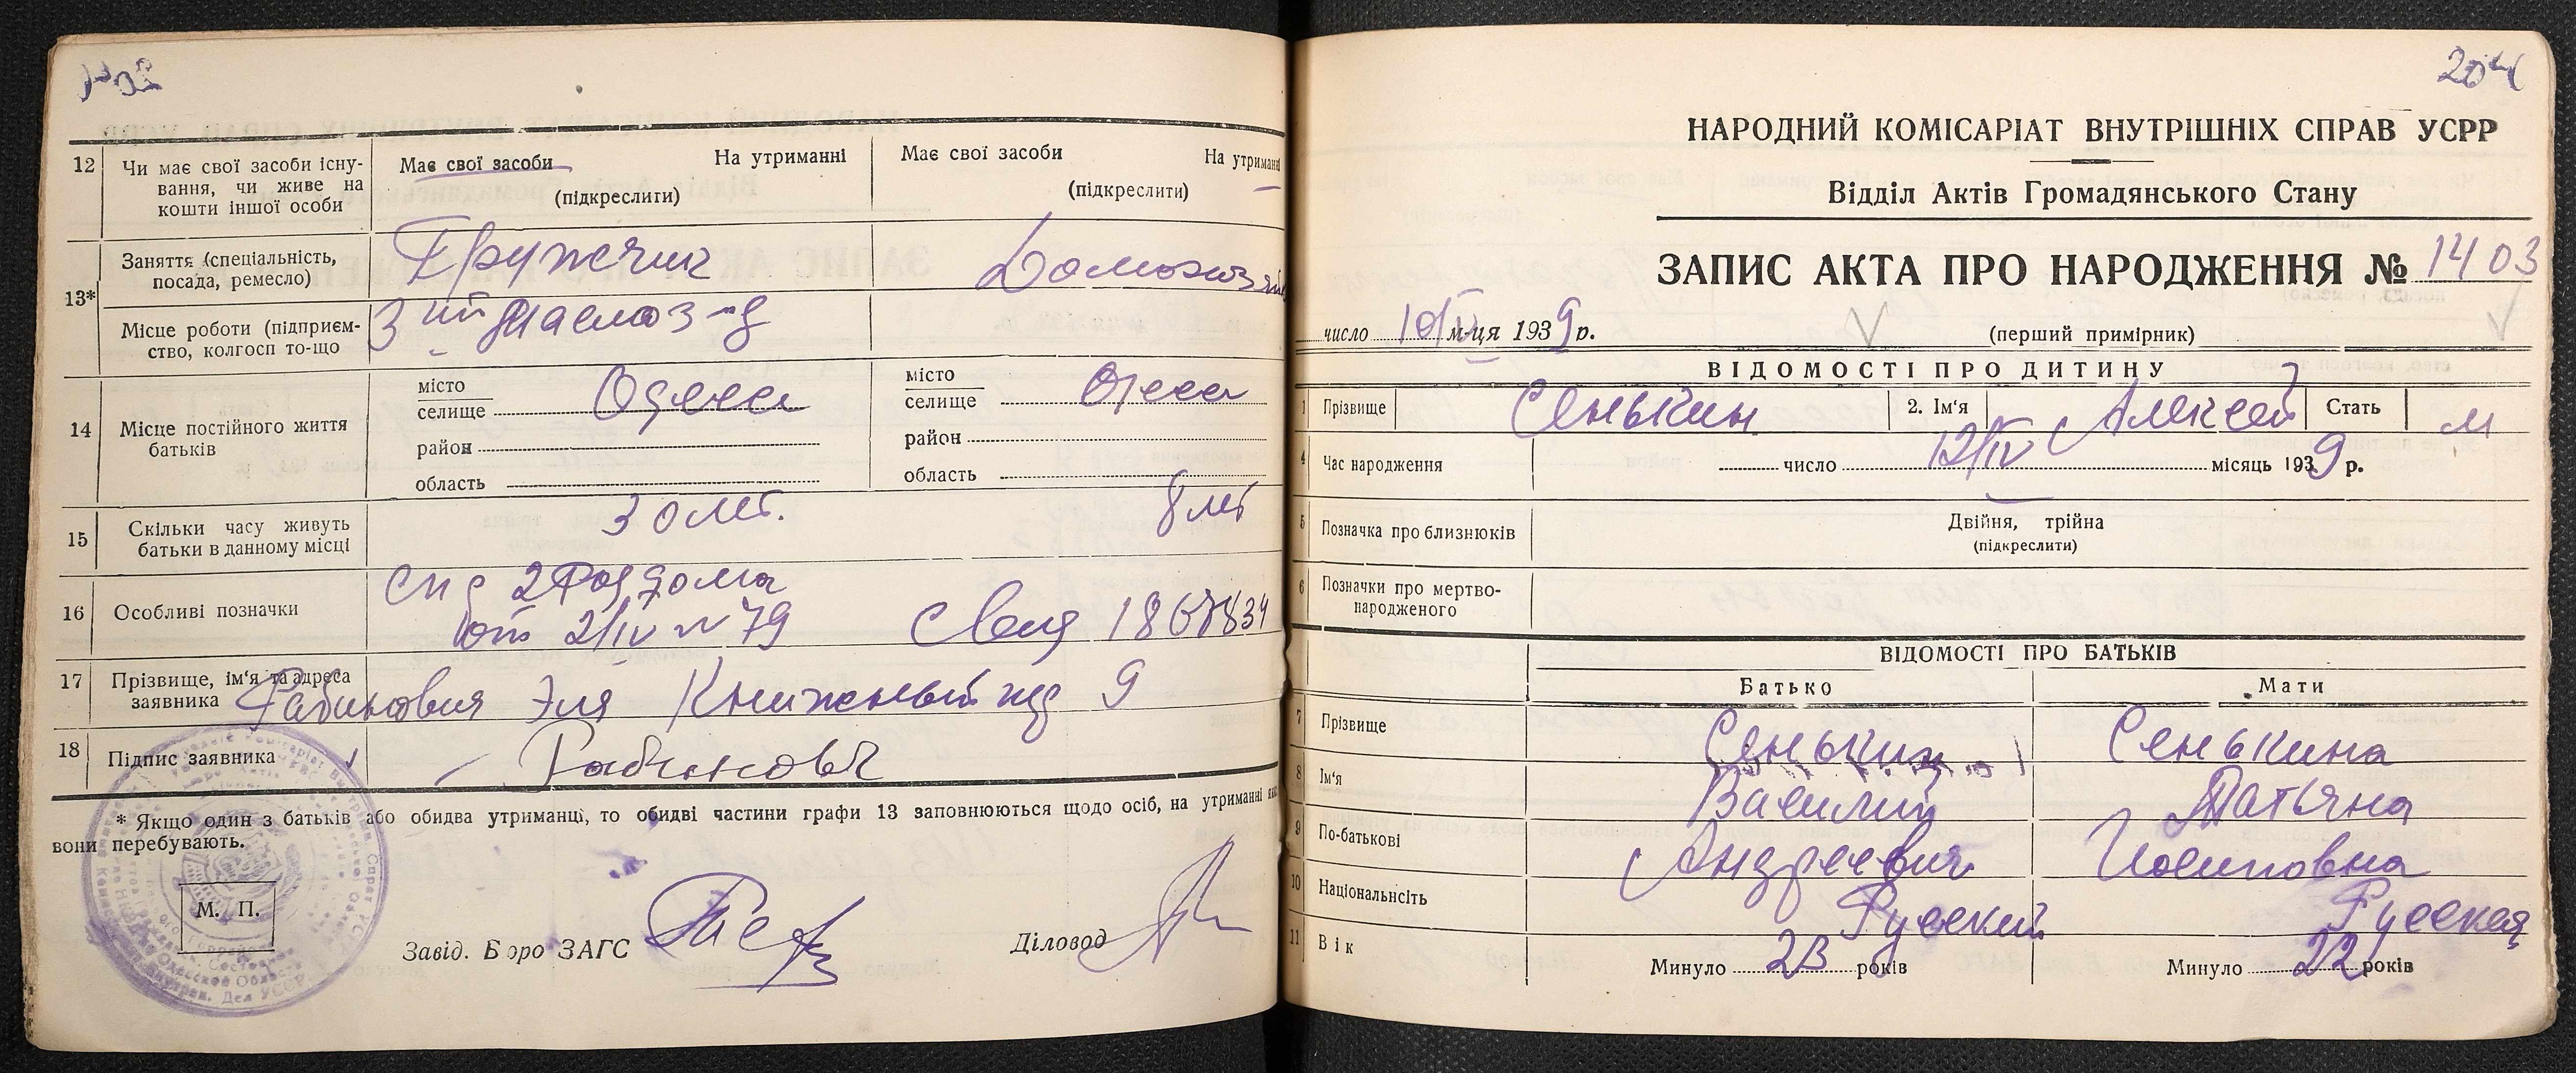 12 Чи має свої засоби існу-
вання, чи живе на
кошти іншої особи
Має свої засоби На утриманні
(підкреслити)
Має свої засоби На утриманні
(підкреслити)
13* Заняття (спеціальність,
посада, ремесло)
Грузчик
Домохозяй
Місце роботи (підприєм-
ство, колгосп то-що
14 Місце постійного життя
батьків
місто
селище Одесса
район
область
місто
селище Одесса
район
область
15 Скільки часу живуть
батьки в данному місці
30 лет.
8 лет
16 Особливі позначки
спр 2 Роддома
от 2/IV № 79
17 Прізвище, ім'я та адреса
заявника Рабинович Эля Книжный пер 9
18 Підпис заявника
Рабинович
* Якщо один з батьків або обидва утриманці, то обидві частини графи 13 заповнюються щодо осіб, на утриманні яких
вони перебувають.
М. П.
Завід. Бюро ЗАГС
Діловод
204
НАРОДНИЙ КОМІСАРІАТ ВНУТРІШНІХ СПРАВ УСРР
Відділ Актів Громадянського Стану
ЗАПИС АКТА ПРО НАРОДЖЕННЯ № 1403
число 10/IV м-ця 1939 р.
(перший примірник)
ВІДОМОСТІ ПРО ДИТИНУ
1 Прізвище Сенькин 2. Ім'я Алексей Стать м
4 Час народження число 12/IV місяць 1939 р.
5 Позначка про близнюків
Двійня, трійна
(підкреслити)
6 Позначки про мертво-
народженого
ВІДОМОСТІ ПРО БАТЬКІВ
Батько Мати
7 Прізвище Сенькин Сенькина
8 Ім'я Василий Татьяна
9 По-батькові Андреевич Иосиповна
10 Національність Русский Русская
11 Вік Минуло 23 років Минуло 22 років